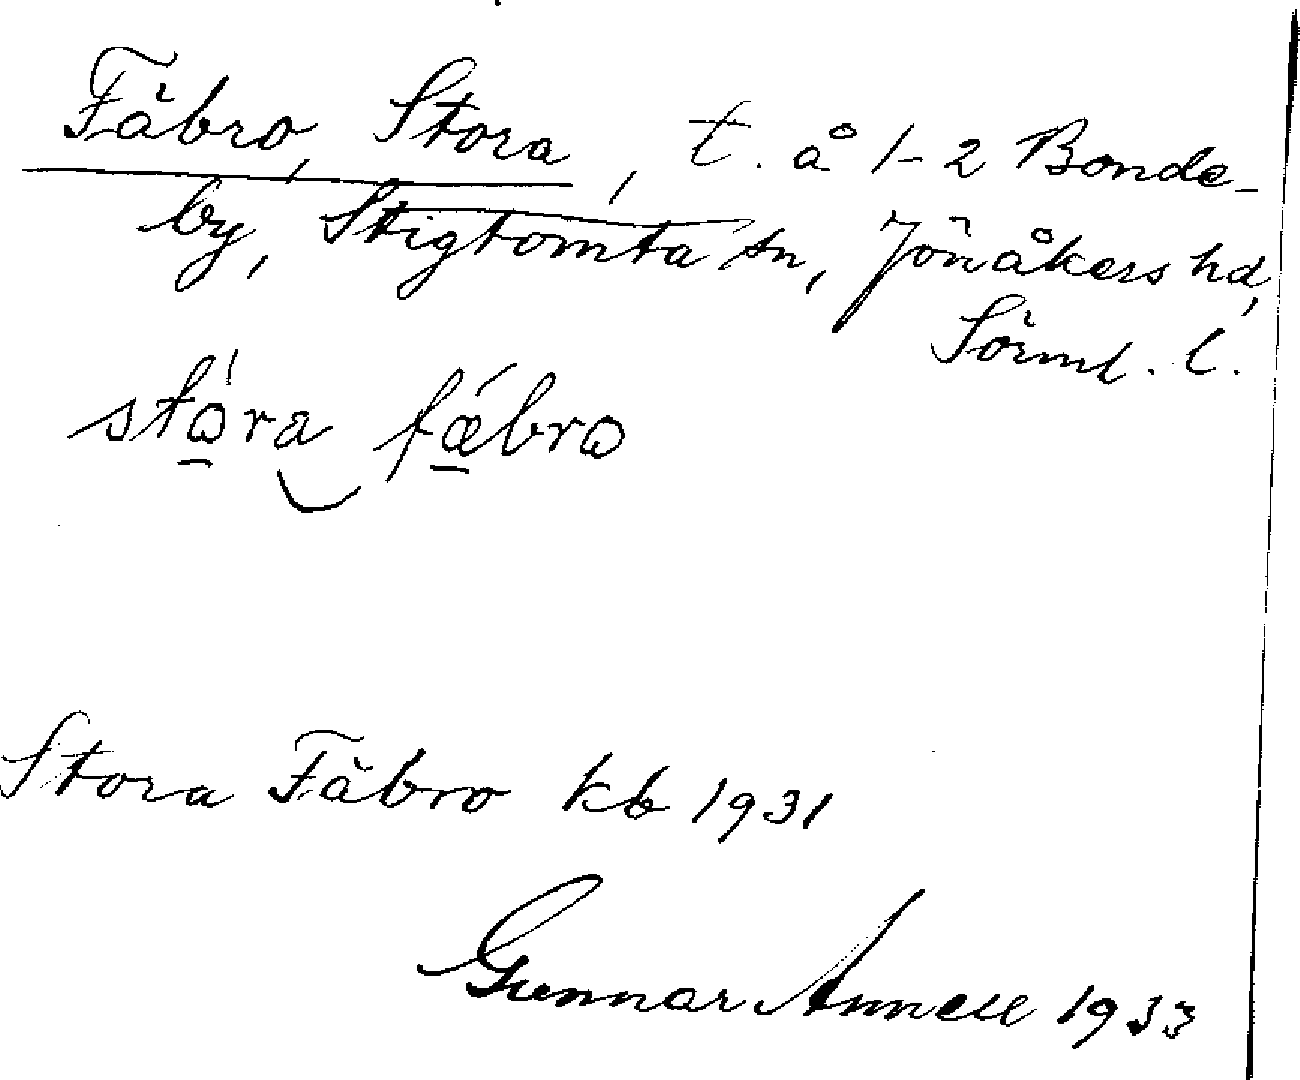 Fäbro, Stora, t. å 1-2 Bonde-
by, Stigtomta sn, Jönåkers hd,
Sörml. l.
stora fäbro
Stora Fäbro kb 1931
Gunnar Annell 1933